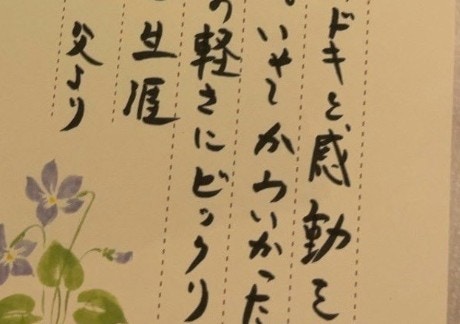 ドキと感動を
いやぁかわいかった
の軽さにビックリ
生涯
父より